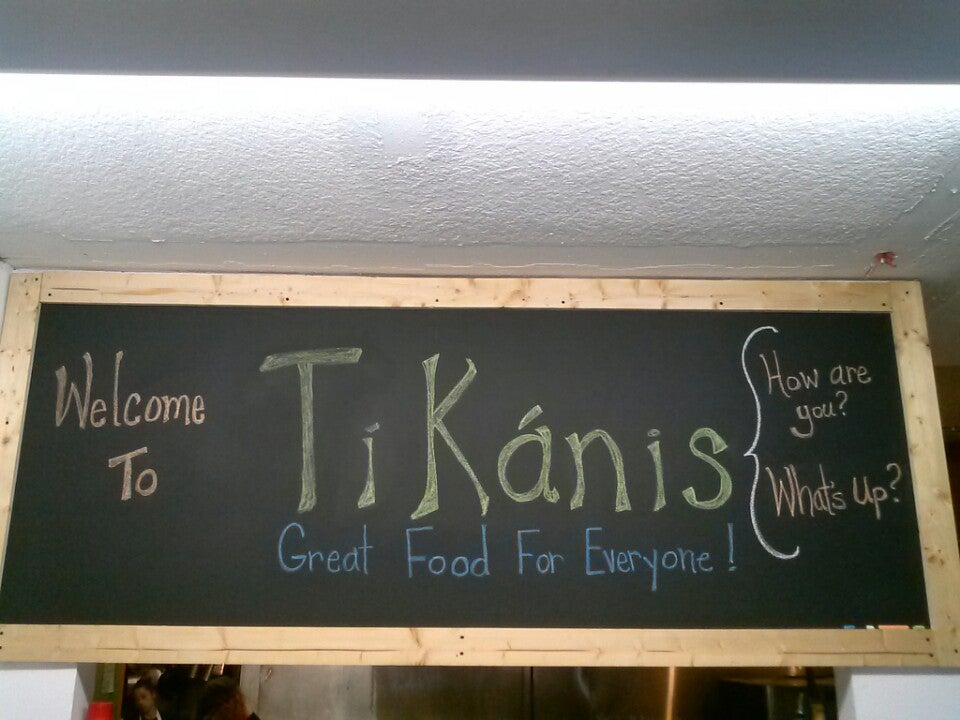 Welcome
To
Tí Kánis
Great Food For Everyone!
How are
you?
What's Up?